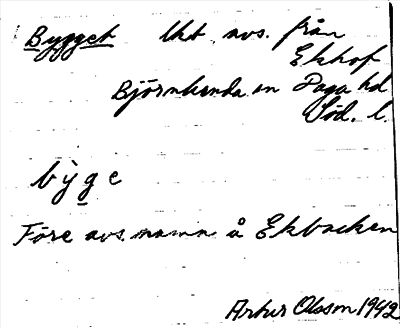 Bygget Uht avs. från
Ekhof
Björnlunda sn Daga hd
Söd. l.
bỳg̱e
Före avs. namn å Ekbacken
Artur Olsson 1942